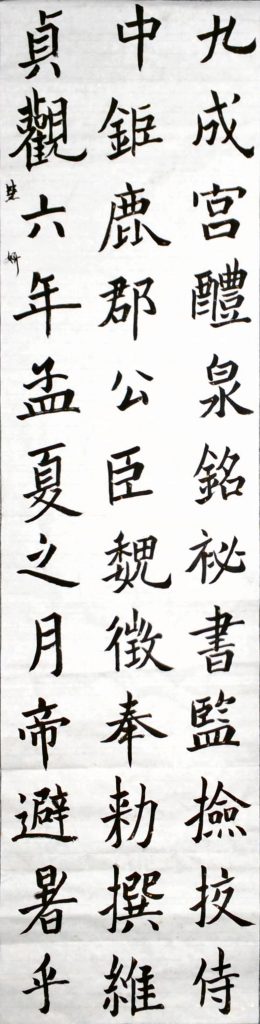 九成宫醴泉銘祕書監撿挍侍
中鉅鹿郡公臣魏徵奉勅撰維
貞觀六年孟夏之月帝避暑乎